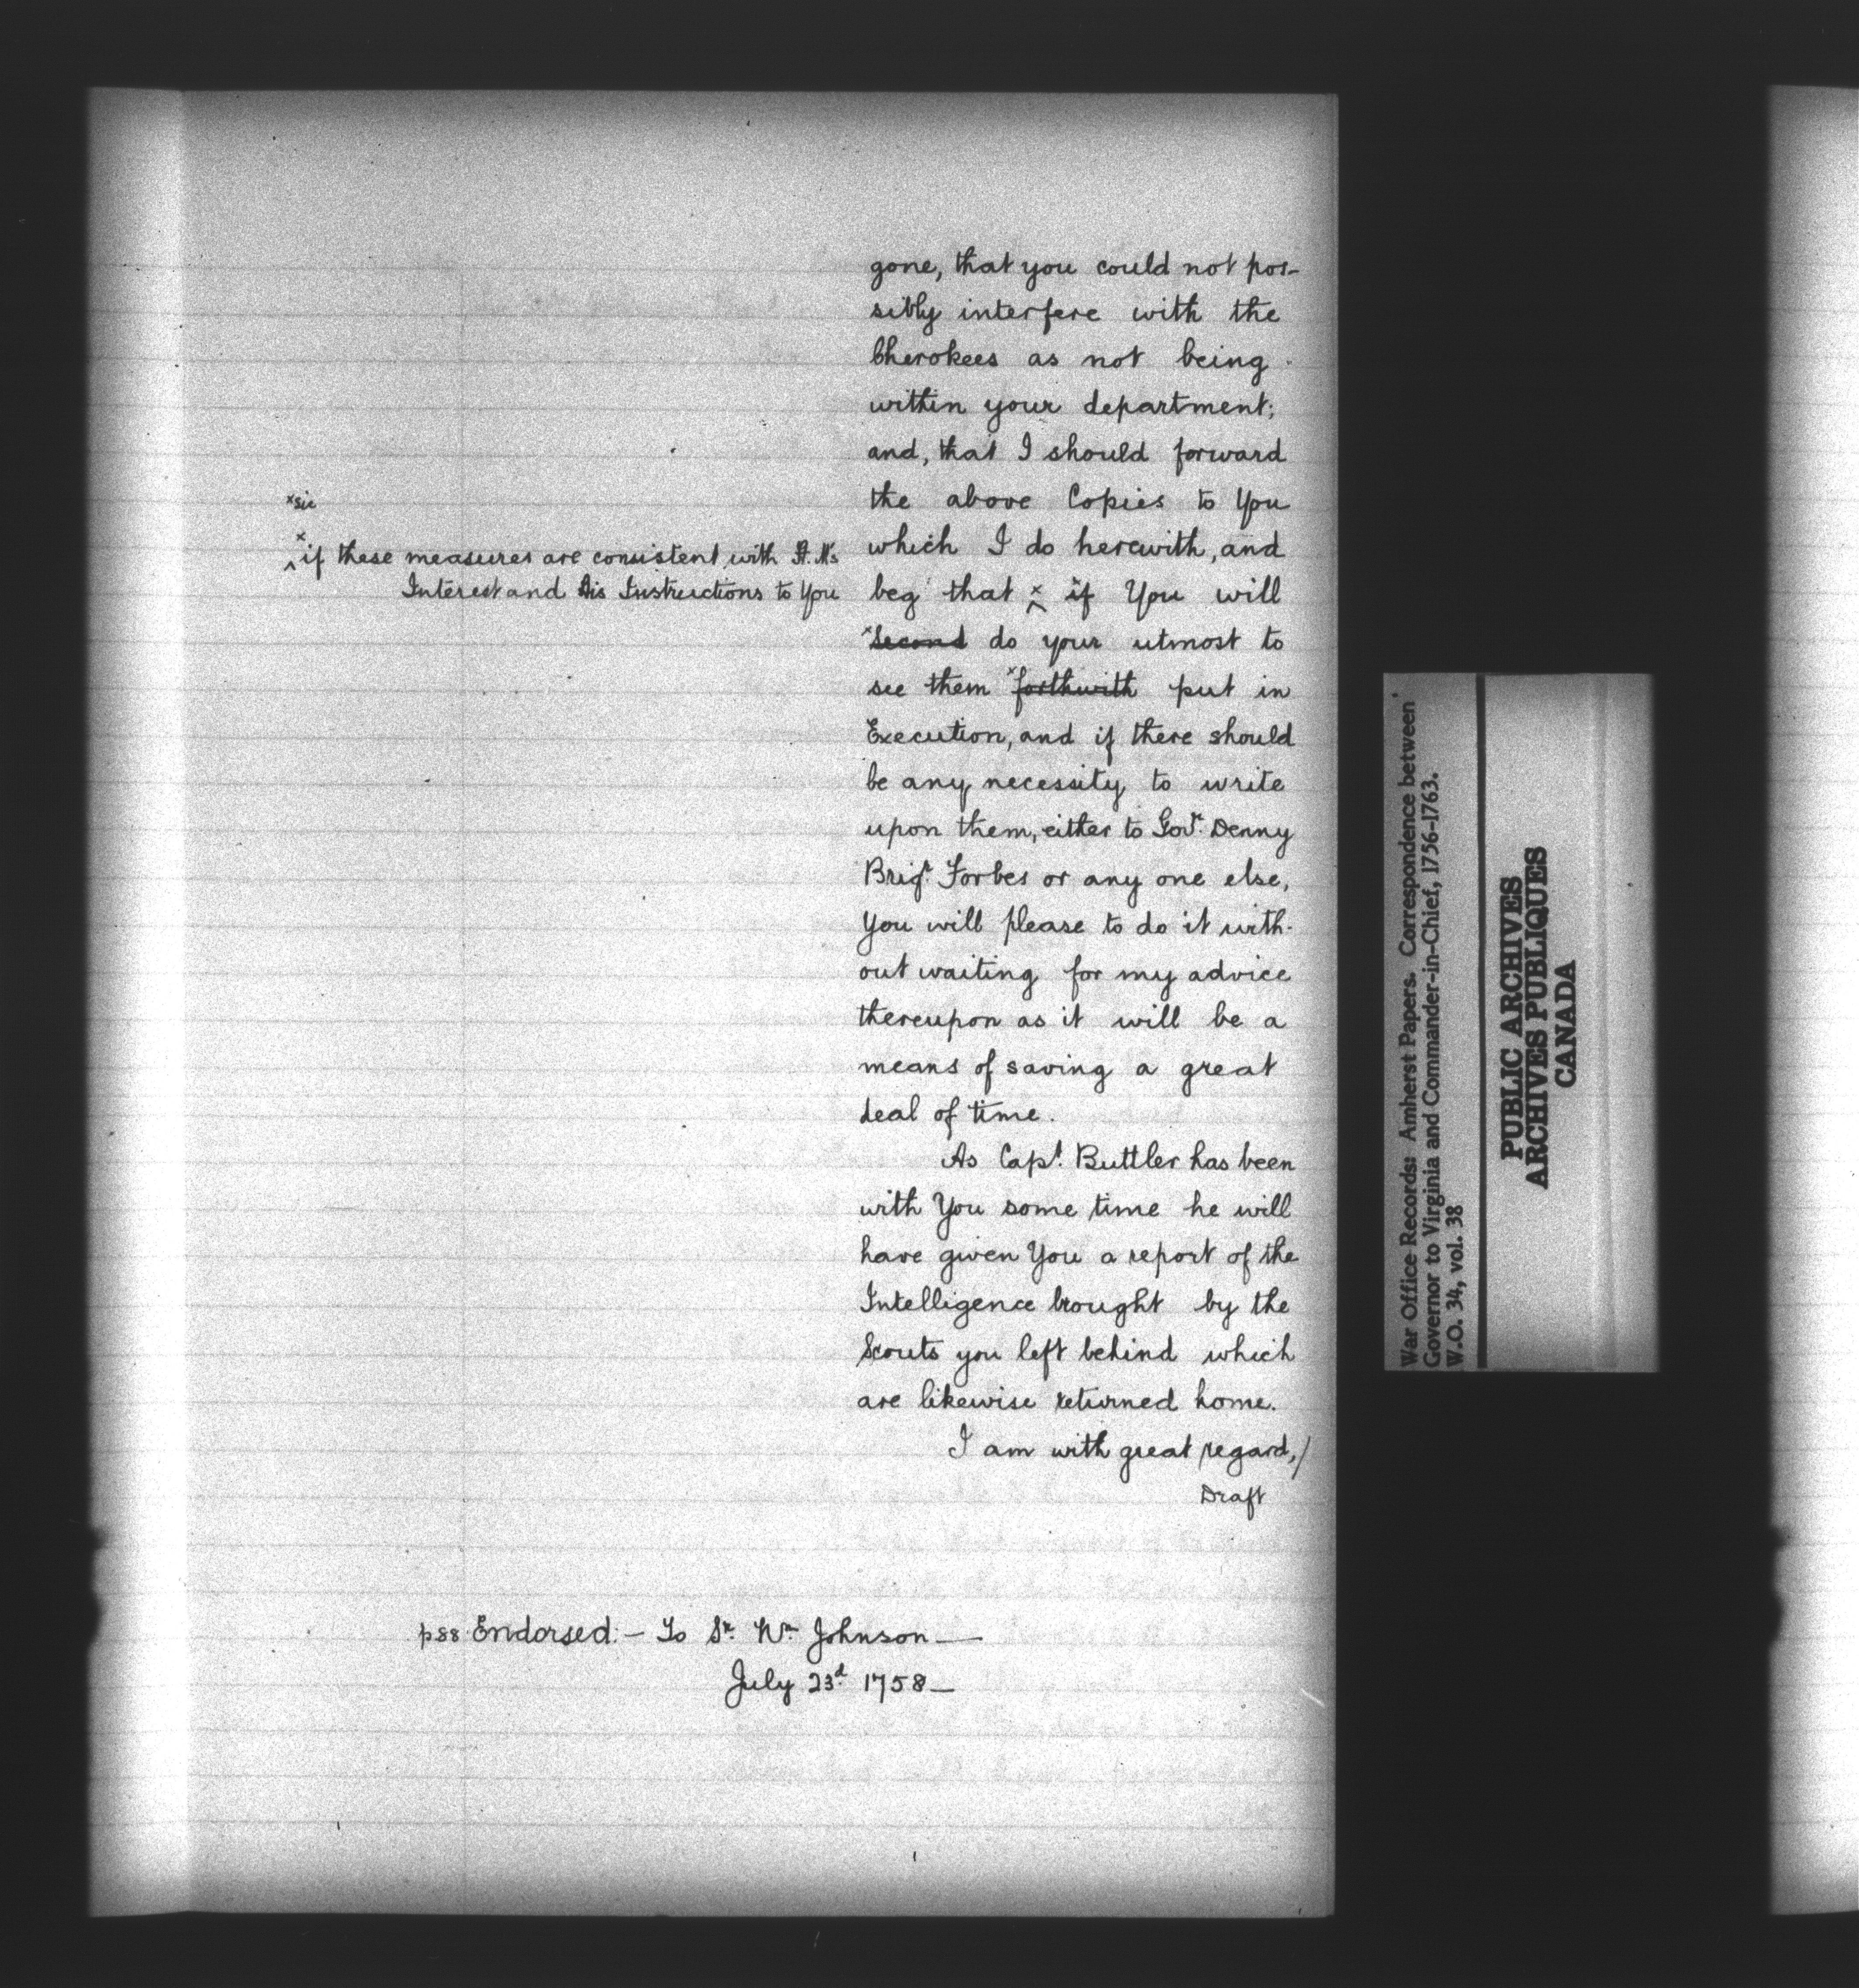 gone, that you could not pos-
sibly interfere with the
Cherokees as not being
within your department;
and, that I should forward
the above Copies to You
which I do herewith, and
beg that ˣ‸ if You will
ˣSecond do your utmost to
see them ˣforthwith put in
Execution, and if there should
be any necessity to write
upon them, either to Govr. Denny
Brigr. Forbes or any one else,
You will please to do it with-
out waiting for my advice
thereupon as it will be a
means of saving a great
deal of time.
As Capt. Buttler has been
with You some time he will
have given You a report of the
Intelligence brought by the
Scouts you left behind which
are likewise returned home.
I am with great regard,/
Draft
ˣsic
ˣ‸if these measures are consistent with H. M's
Interest and His Instructions to You
p 88 Endorsed:— To Sr. Wm. Johnson—
July 23d. 1758—
War Office Records: Amherst Papers. Correspondence between
Governor to Virginia and Commander-in-Chief, 1756-1763.
W.O. 34, vol. 38
PUBLIC ARCHIVES
ARCHIVES PUBLIQUES
CANADA